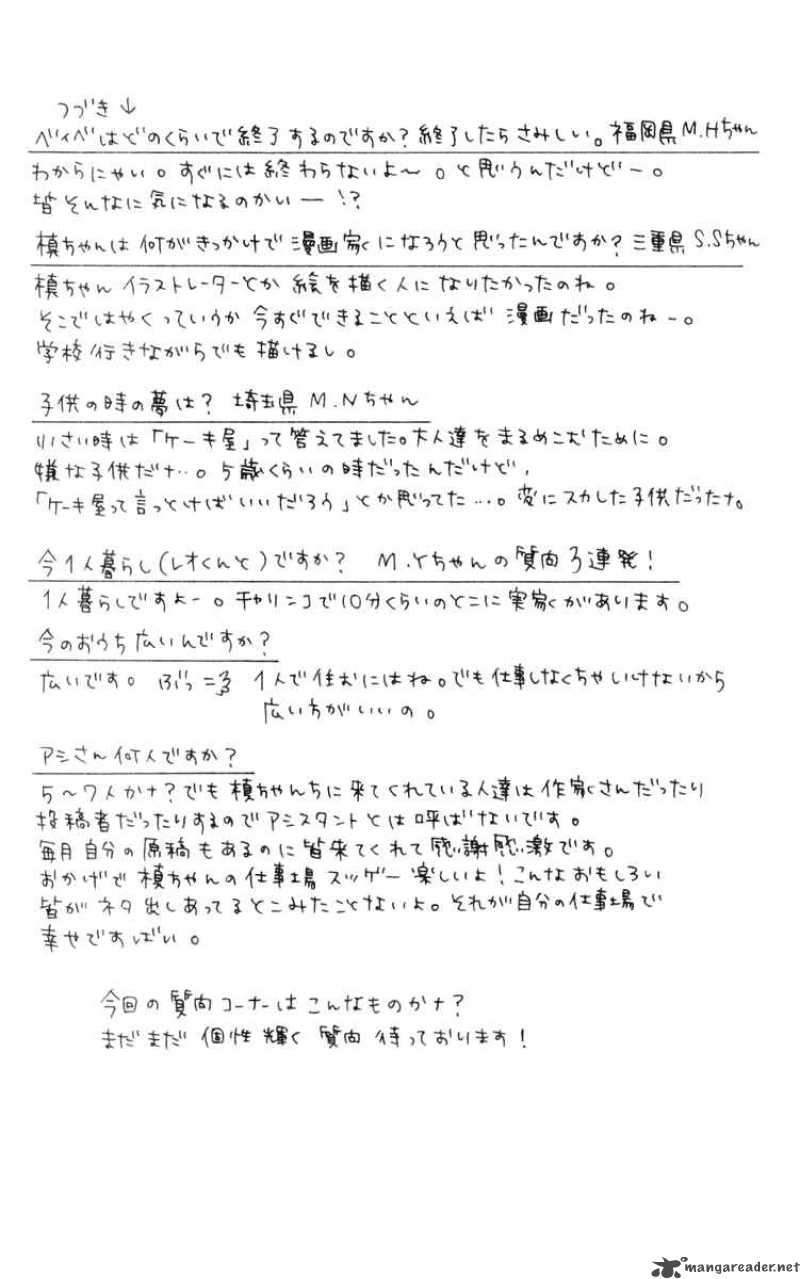 つづき↓
ベイベはどのくらいで終了するのですか?終了したらさみしい。福岡県M.Hちゃん
わからにゃい。すぐには終わらないよ〜。と思うんだけどー。
皆そんなに気になるのかいー!?
槙ちゃんは何がきっかけで漫画家になろうと思ったんですか?三重県S.Sちゃん
槙ちゃんイラストレーターとか絵を描く人になりたかったのね。
そこではやくっていうか今すぐできることといえば漫画だったのねー。
学校行きながらでも描けるし。
子供の時の夢は?埼玉県M.Nちゃん
小さい時は「ケーキ屋」って答えてました。大人達をまるめこむために。
嫌な子供だナ…。5歳くらいの時だったんだけど、
「ケーキ屋って言っとけばいいだろう」とか思ってた…。変にスカした子供だったナ。
今1人暮らし(レオくんと)ですか? M.Yちゃんの質問3連発!
1人暮らしですよー。チャリンコで10分くらいのとこに実家があります。
今のおうち広いんですか?
広いです。ぶっこ3 1人で住むにはね。でも仕事しなくちゃいけないから
広い方がいいの。
アシさん何人ですか?
5〜7人かナ?でも槙ちゃんちに来てくれている人達は作家さんだったり
投稿者だったりするのでアシスタントとは呼ばないです。
毎月自分の原稿もあるのに皆来てくれて感謝感激です。
おかげで槙ちゃんの仕事場スッゲー楽しいよ!こんなおもしろい
皆がネタ出しあってるとこみたことないよ。それが自分の仕事場で
幸せですばい。
今回の質問コーナーはこんなものかナ?
まだまだ個性輝く質問待っております!
mangareader.net